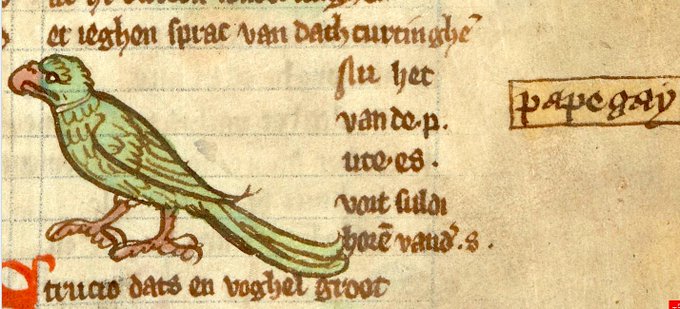 et ieghen sprac van dachcurtinghē
Nu het
van de·p.
ute·es·
papegay
vort suldi
horē vand'·s·
Strucio dats en voghel groot